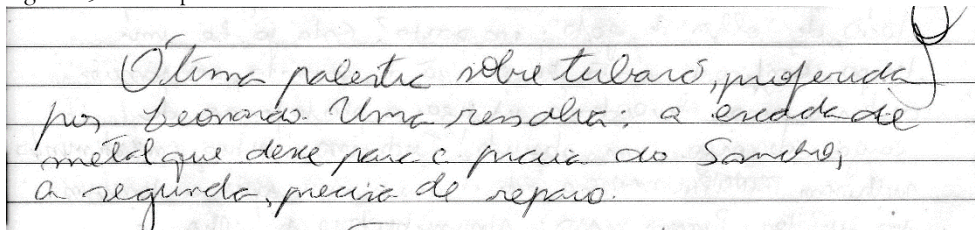 Ótima palestra sobre tubarõ, proferida
por Leonardo. Uma ressalva: a escada de
metal que desce para a praia do Sancho,
a segunda, precisa de reparo.